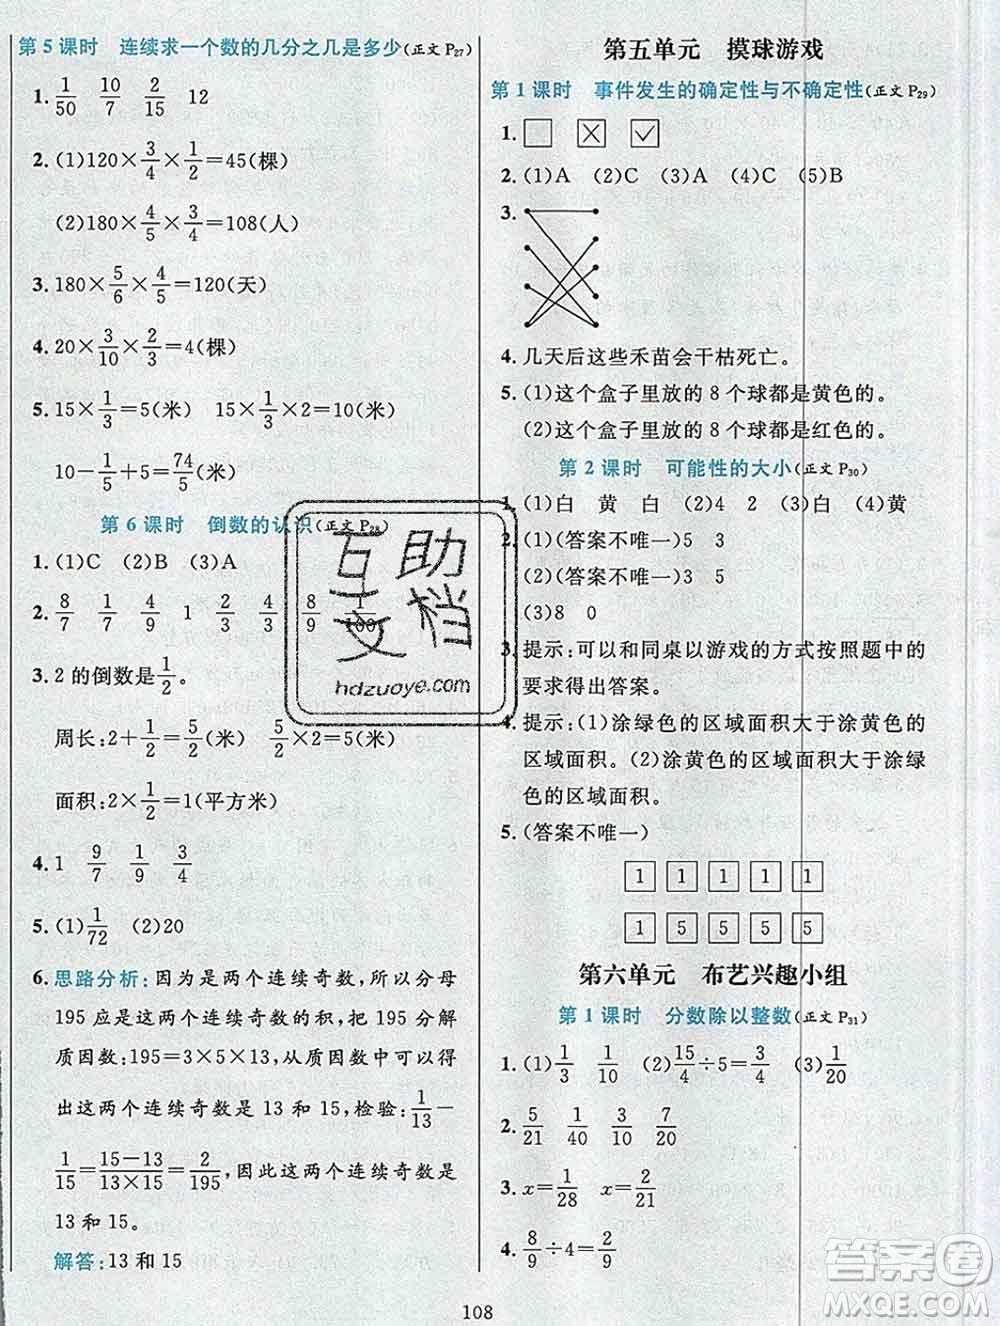 第 5 课时 连续求一个数的几分之几是多少(正文 P27)
1. 1/50 10/7 2/15 12
2. (1)120×3/4×1/2=45(棵)
(2)180×4/5×3/4=108(人)
3. 180×5/6×4/5=120(天)
4. 20×3/10×2/3=4(棵)
5. 15×1/3=5(米) 15×1/3×2=10(米)
10-1/5+5=74/5(米)
第 6 课时 倒数的认识(正文 P28)
1. (1)C (2)B (3)A
2. 8/7 1/7 4/9 1 2/3 4/3 8/9 1/100
3. 2 的倒数是1/2。
周长:2+1/2=5/2(米) 5/2×2=5(米)
面积:2×1/2=1(平方米)
4. 1 9/7 1/9 3/4
5. (1)1/72 (2)20
6. 思路分析:因为是两个连续奇数,所以分母
195 应是这两个连续奇数的积,将 195 分解
质因数:195=3×5×13,从质因数中可以看
出这两个连续奇数是 13 和 15,检验:1/13-
1/15=(15-13)/(13×15)=2/195,因此这两个连续奇数是
13 和 15。
解答:13 和 15
第五单元 摸球游戏
第 1 课时 事件发生的确定性与不确定性(正文 P29)
1. □ ☒ ☑
2. (1)A (2)C (3)A (4)C (5)B
3.
4. 几天后这些禾苗会干枯死亡。
5. (1)这个盒子里放的 8 个球都是黄色的。
(2)这个盒子里放的 8 个球都是红色的。
第 2 课时 可能性的大小(正文 P30)
1. (1)白 黄 白 (2)4 2 (3)白 (4)黄
2. (1)(答案不唯一)5 3
(2)(答案不唯一)3 5
(3)8 0
3. 提示:可以和同桌以游戏的方式按照题中的
要求得出答案。
4. 提示:(1)涂绿色的区域面积大于涂黄色的
区域面积。(2)涂黄色的区域面积大于涂绿
色的区域面积。
5. (答案不唯一)
1 1 1 1 1
1 5 5 5 5
第六单元 布艺兴趣小组
第 1 课时 分数除以整数(正文 P31)
1. (1)1/3 1/10 (2)15/4÷5=3/4 (3)1/20
2. 5/21 1/40 3/10 7/20
3. x=1/28 x=2/21
4. 8/9÷4=2/9
108
互助
文档
hdzuoye.com
答案圈
MXQE.COM